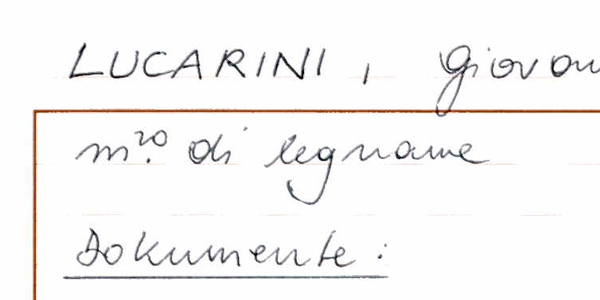 LUCARINI, Giovan
m.ro di legname
Dokumente: